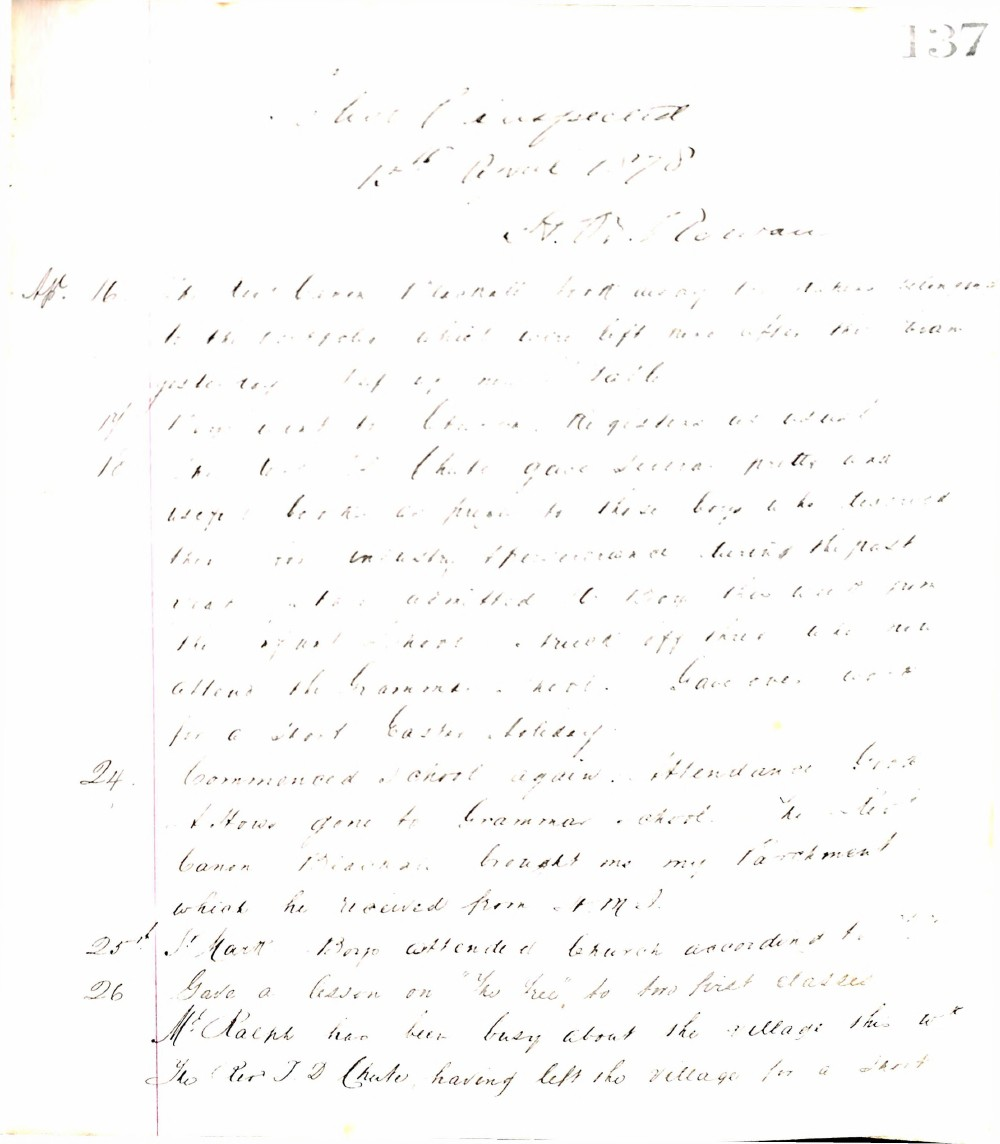 137
inspected
15th April 1878
Apl. 16 The Revd Canon took away the
to the which were left here after the Exam
yesterday put up my Table
17 Boys went to Church. Registers as usual
18 The Revd Chute gave several pretty and
useful books as prizes to those boys who deserved
them for industry & perseverance during the past
year admitted 6 Boys this week from
the Infant School struck off three who now
attend the Grammar School. Gave over work
for a short Easter holiday
24. Commenced School again. Attendance Good
gone to Grammar School. The Revd
Canon brought me my Parchment
which he received from H.M.I.
25th St Mark Boys attended Church according to
26 Gave a lesson on "The Tree" to two first classes
Mr Ralph has been busy about the village this wk
The Rev T D Chute, having left the village for a short